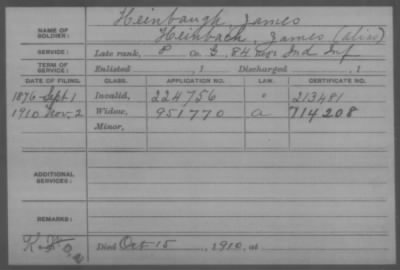 Heinbaugh, James
NAME OF SOLDIER: Heinbach, James (alias)
SERVICE: Late rank, P Co. G, 84 Reg't Ind Inf
TERM OF SERVICE: Enlisted , 1 Discharged , 1
DATE OF FILING. CLASS. APPLICATION NO. LAW. CERTIFICATE NO.
1876 Sept 1 Invalid, 224756 " 213481
1910 Nov-2 Widow, 951770 a 714208
Minor,
ADDITIONAL SERVICES:
REMARKS:
Died Oct 15 , 1910, at